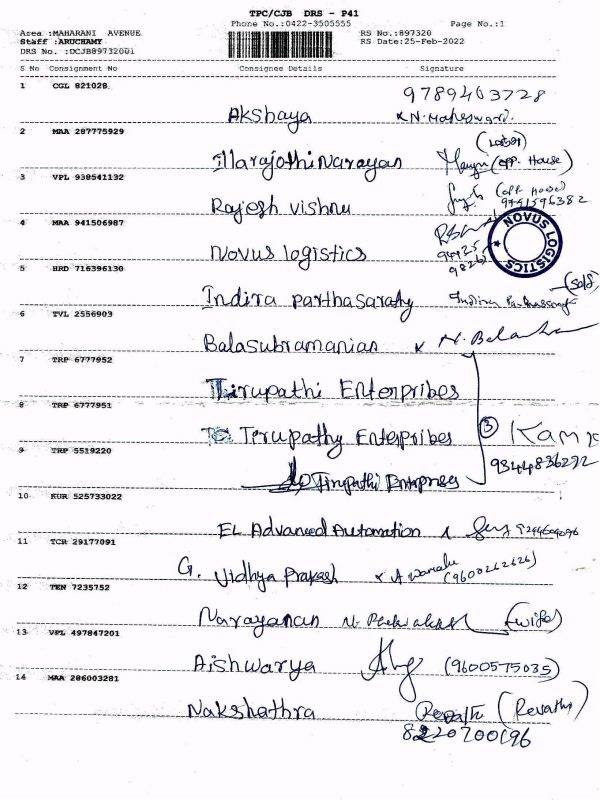 TPC/CJB DRS - P41
Phone No.:0422-3505555 Page No.:1
Area :MAHARANI AVENUE RS No.:897320
Staff :ARUCHAMY RS Date:25-Feb-2022
DRS No. :DCJB89732001
S No Consignment No Consignee Details Signature
1 CGL 821028
Akshaya 9789403728
K.N. Maheswari.
2 MAA 287775929
Illarajothi Narayan (opp. House)
3 VPL 938541132
Rajesh Vishnu (opp House)
9791596382
4 MAA 941506987
Novus logistics
NOVUS LOGISTICS
5 HRD 716396130
Indira Parthasarathy
6 TVL 2556903
Balasubramanian x
7 TRP 6777952
Tirupathi Enterpribes
8 TRP 6777951
Tirupathy Enterpribes ③
9 TRP 5519220 9344836292
Tirupathi Enterprises
10 KUR 525733022
EL Advanced Automation
11 TCR 29177091
G. Vidhya Prakash (9600262626)
12 TEN 7235752
Narayanan (wife)
13 VPL 497847201
Aishwarya (9600575035)
14 MAA 286003281
Nakshathra Revathi (Revathy)
8220700696